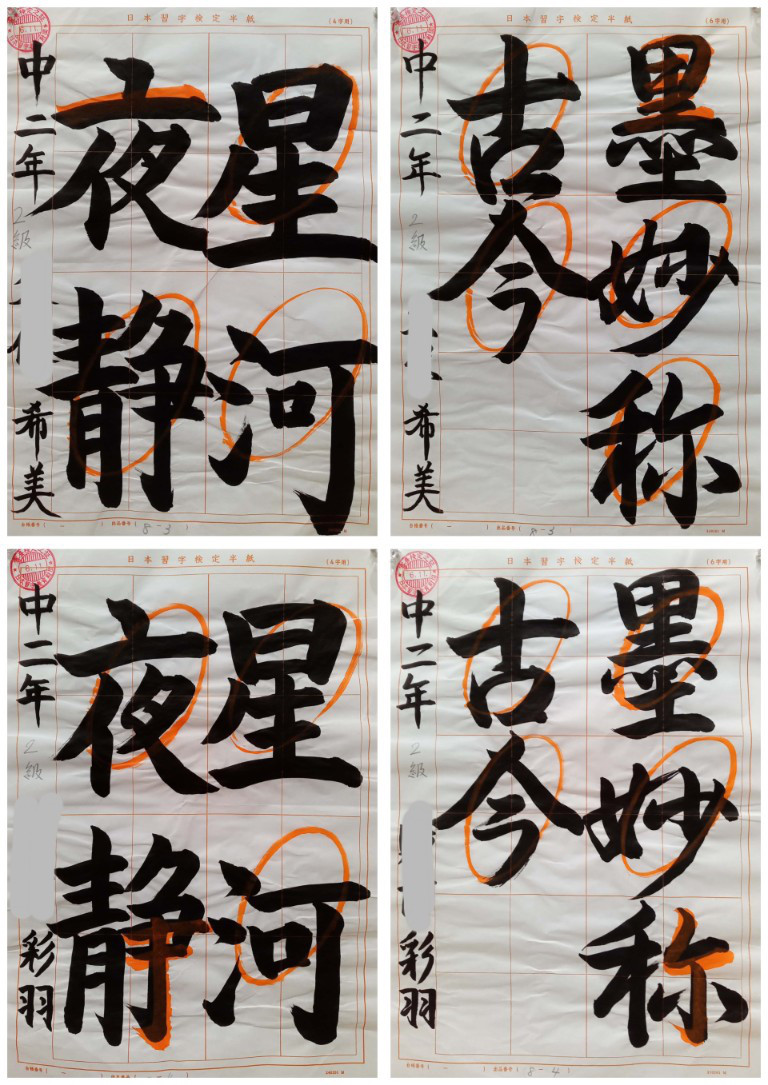 日本習字検定半紙
(4字用)
星河
夜静
中二年
2級
希美
出品番号
8-3
日本習字検定半紙
(6字用)
墨妙称
古今
中二年
2級
希美
出品番号
8-3
日本習字検定半紙
(4字用)
星河
夜静
中二年
2級
彩羽
日本習字検定半紙
(6字用)
墨妙称
古今
中二年
2級
彩羽
出品番号
8-4